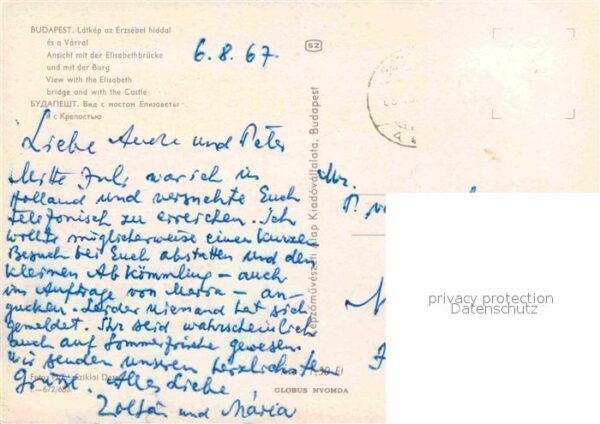 BUDAPEST. Látkép az Erzsébet híddal
és a Várral
Ansicht mit der Elisabethbrücke
und mit der Burg
View with the Elisabeth
bridge and with the Castle
БУДАПЕШТ. Вид с мостом Елизаветы
и с Крепостью
6.8.67.
SZ
Liebe und Peter
Mitte Juli war ich in
Holland und versuchte Euch
telefonisch zu erreichen. Ich
wollte möglicherweise einen kurzen
Besuch bei Euch abstatten und den
kleinen Abkömmling – auch
im Auftrage von Maria – an-
gucken. Leider niemand hat sich
gemeldet. Ihr seid wahrscheinlich
auch auf Sommerfrische gewesen.
Wir senden unseren herzlichste
Grüsse. Alles Liebe
Zoltán und Mária
Képzőművészeti Alap Kiadóvállalata, Budapest
privacy protection
Datenschutz
GLOBUS NYOMDA